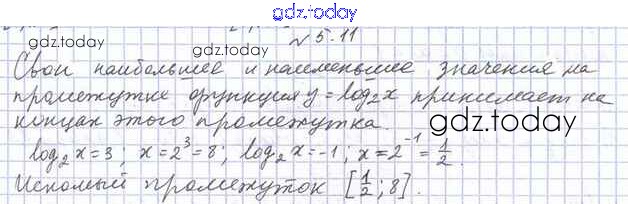 gdz.today
gdz.today
№ 5.11
Свои наибольшее и наименьшее значения на
промежутке функция y = log₂x принимает на
концах этого промежутка.
gdz.today
log₂x = 3; x = 2³ = 8; log₂x = -1; x = 2⁻¹ = 1/2.
Искомый промежуток [1/2; 8].